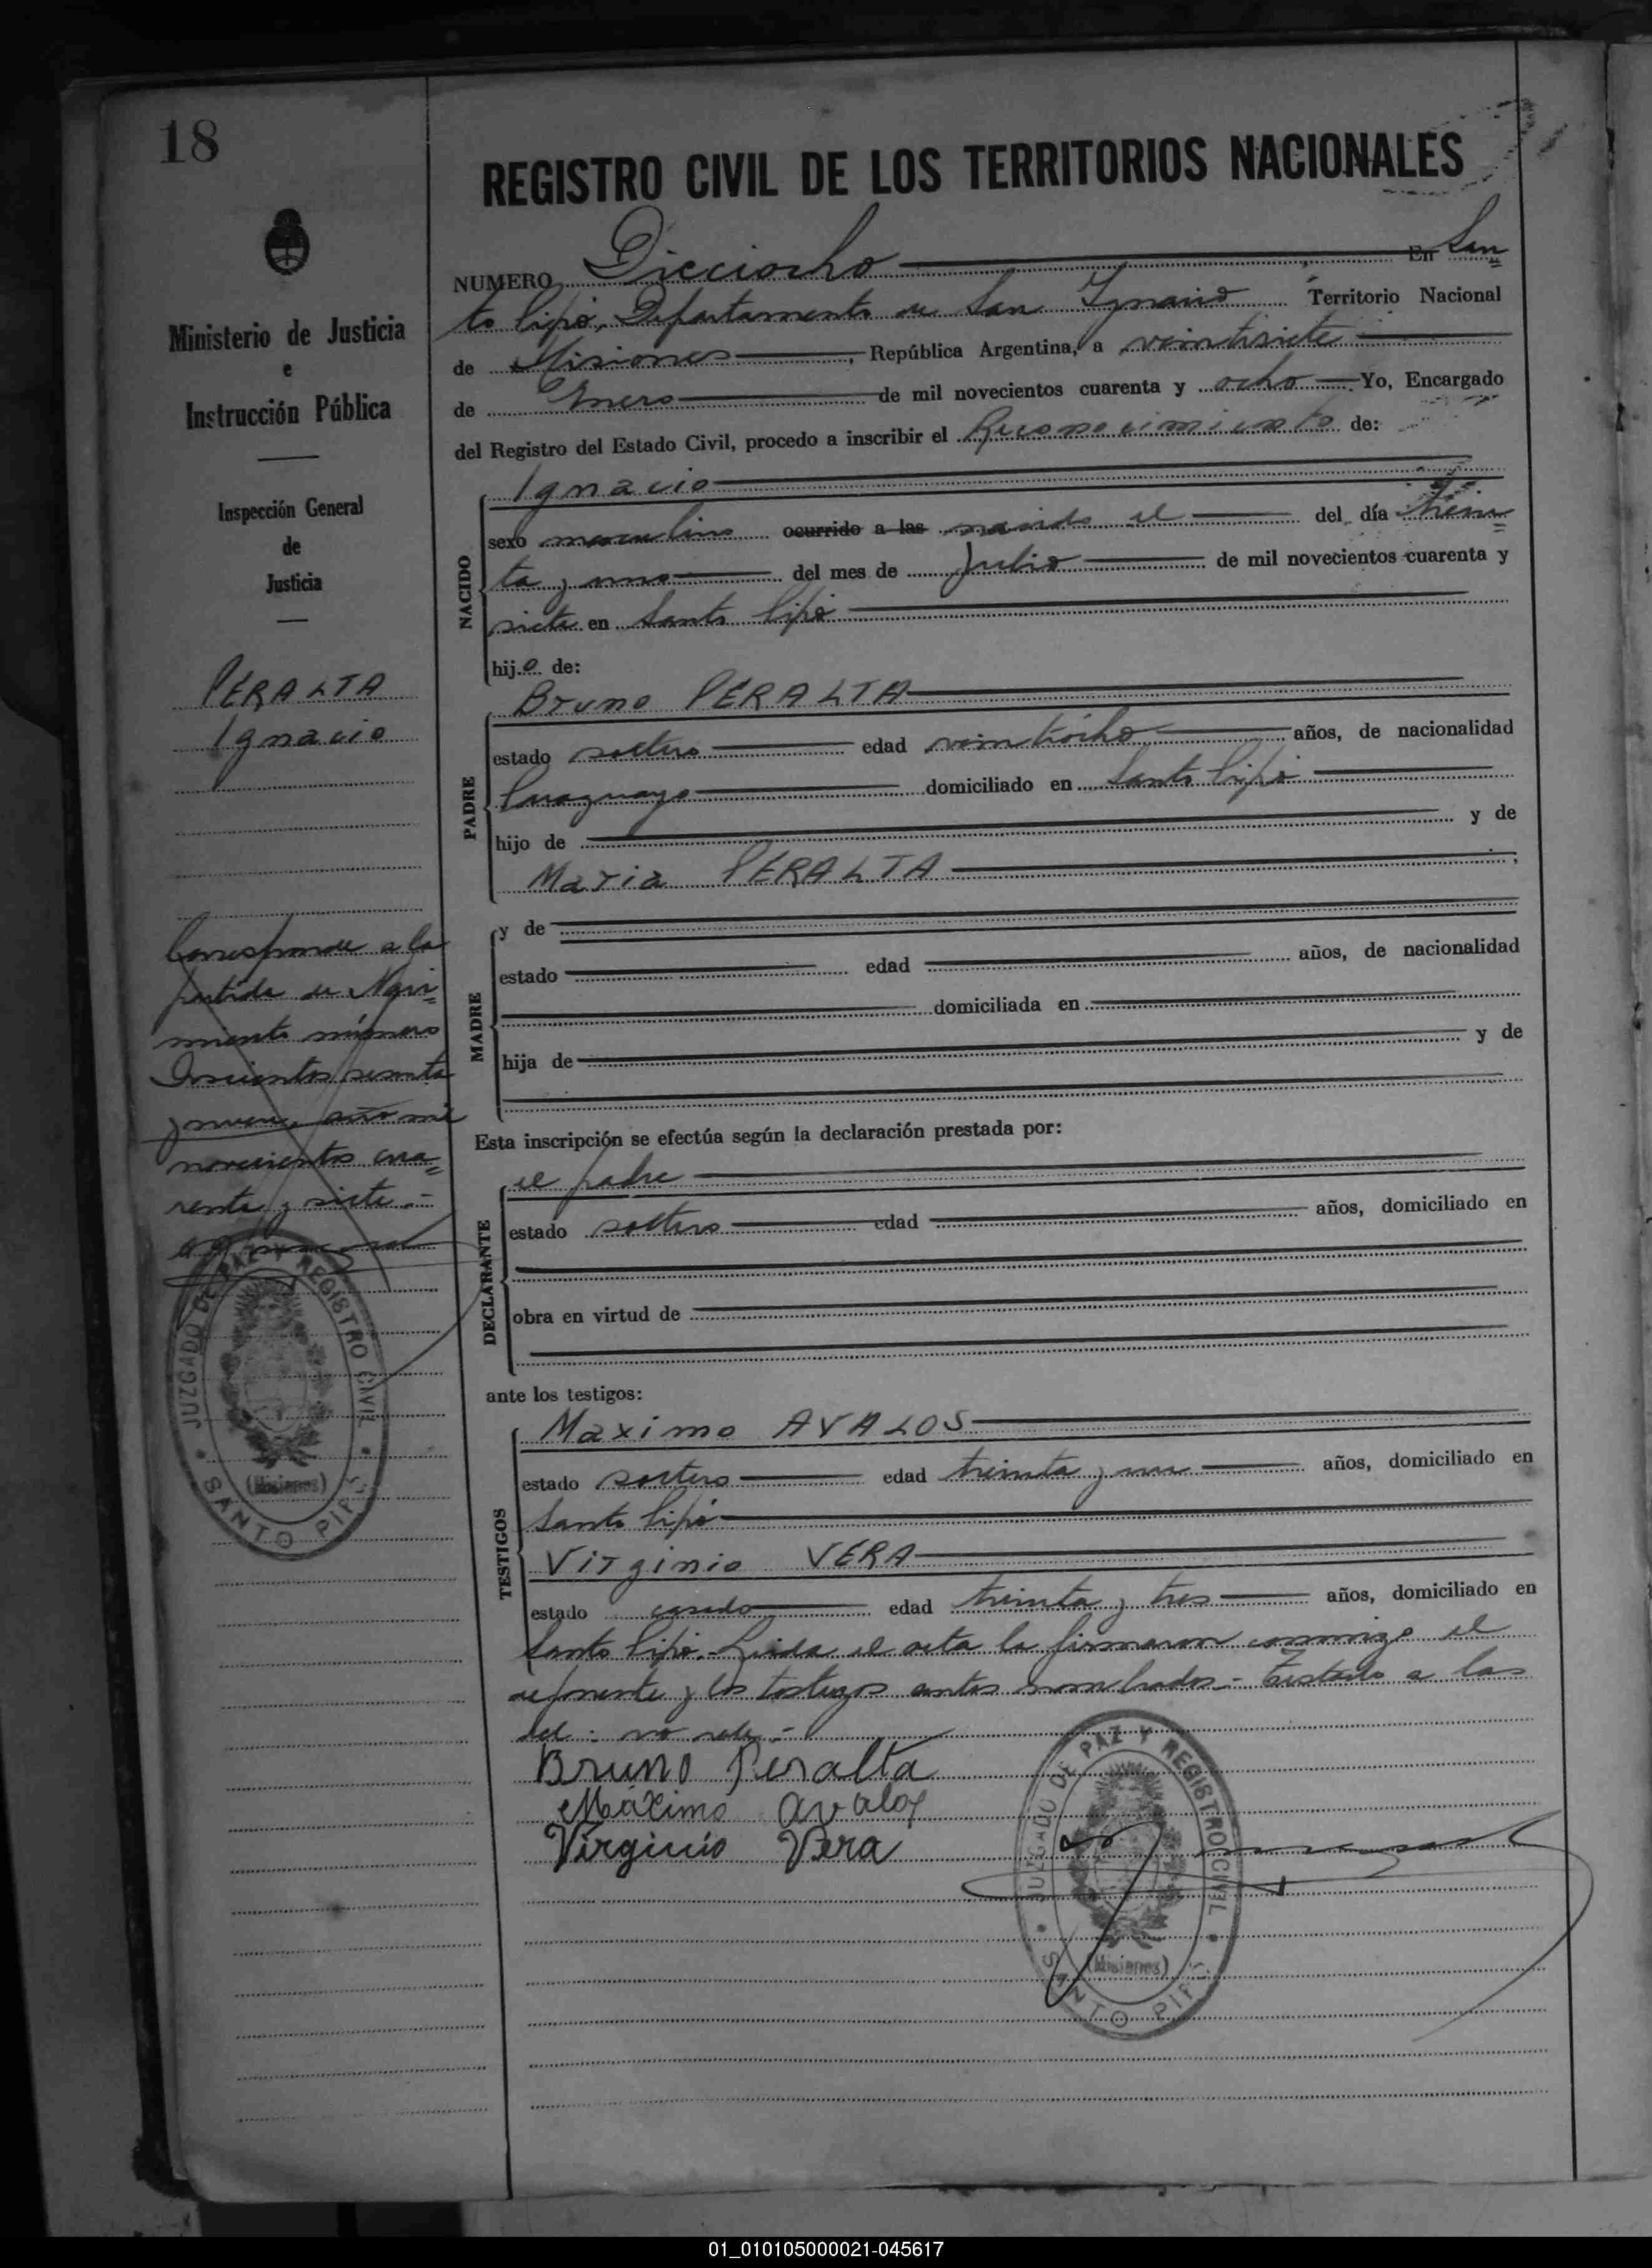 18
REGISTRO CIVIL DE LOS TERRITORIOS NACIONALES
NUMERO Dieciocho En San=
to Pipó, Departamento de San Ignacio Territorio Nacional
de Misiones, República Argentina, a veintisiete
de Enero de mil novecientos cuarenta y ocho Yo, Encargado
del Registro del Estado Civil, procedo a inscribir el Reconocimiento de:
Ministerio de Justicia
e
Instrucción Pública
Inspección General
de
Justicia
PERALTA
Ignacio
Corresponde a la
partida de Naci=
miento número
sesenta
y nueve, año mil
novecientos cua=
renta y siete.-
JUZGADO DE PAZ Y REGISTRO CIVIL
(Misiones)
SANTO PIPÓ
NACIDO
Ignacio
sexo masculino ocurrido a las nacido el del día trein=
ta y uno del mes de Julio de mil novecientos cuarenta y
siete en Santo Pipó
hijo de:
PADRE
Bruno PERALTA
estado soltero edad veintiocho años, de nacionalidad
Paraguayo domiciliado en Santo Pipó
hijo de y de
Maria PERALTA
MADRE
y de
estado edad años, de nacionalidad
domiciliada en
hija de y de
Esta inscripción se efectúa según la declaración prestada por:
DECLARANTE
el padre
estado soltero edad años, domiciliado en
obra en virtud de
ante los testigos:
TESTIGOS
Maximo AVALOS
estado soltero edad treinta y un años, domiciliado en
Santo Pipó
Virginio VERA
estado casado edad treinta y tres años, domiciliado en
Santo Pipó.- Leida el acta la firmaron conmigo el
deponente y los testigos antes nombrados.- Testado a las
del: no vale.-
Bruno Peralta
Máximo Avalos
Virginio Vera
JUZGADO DE PAZ Y REGISTRO CIVIL
(Misiones)
SANTO PIPÓ
01_010105000021-045617